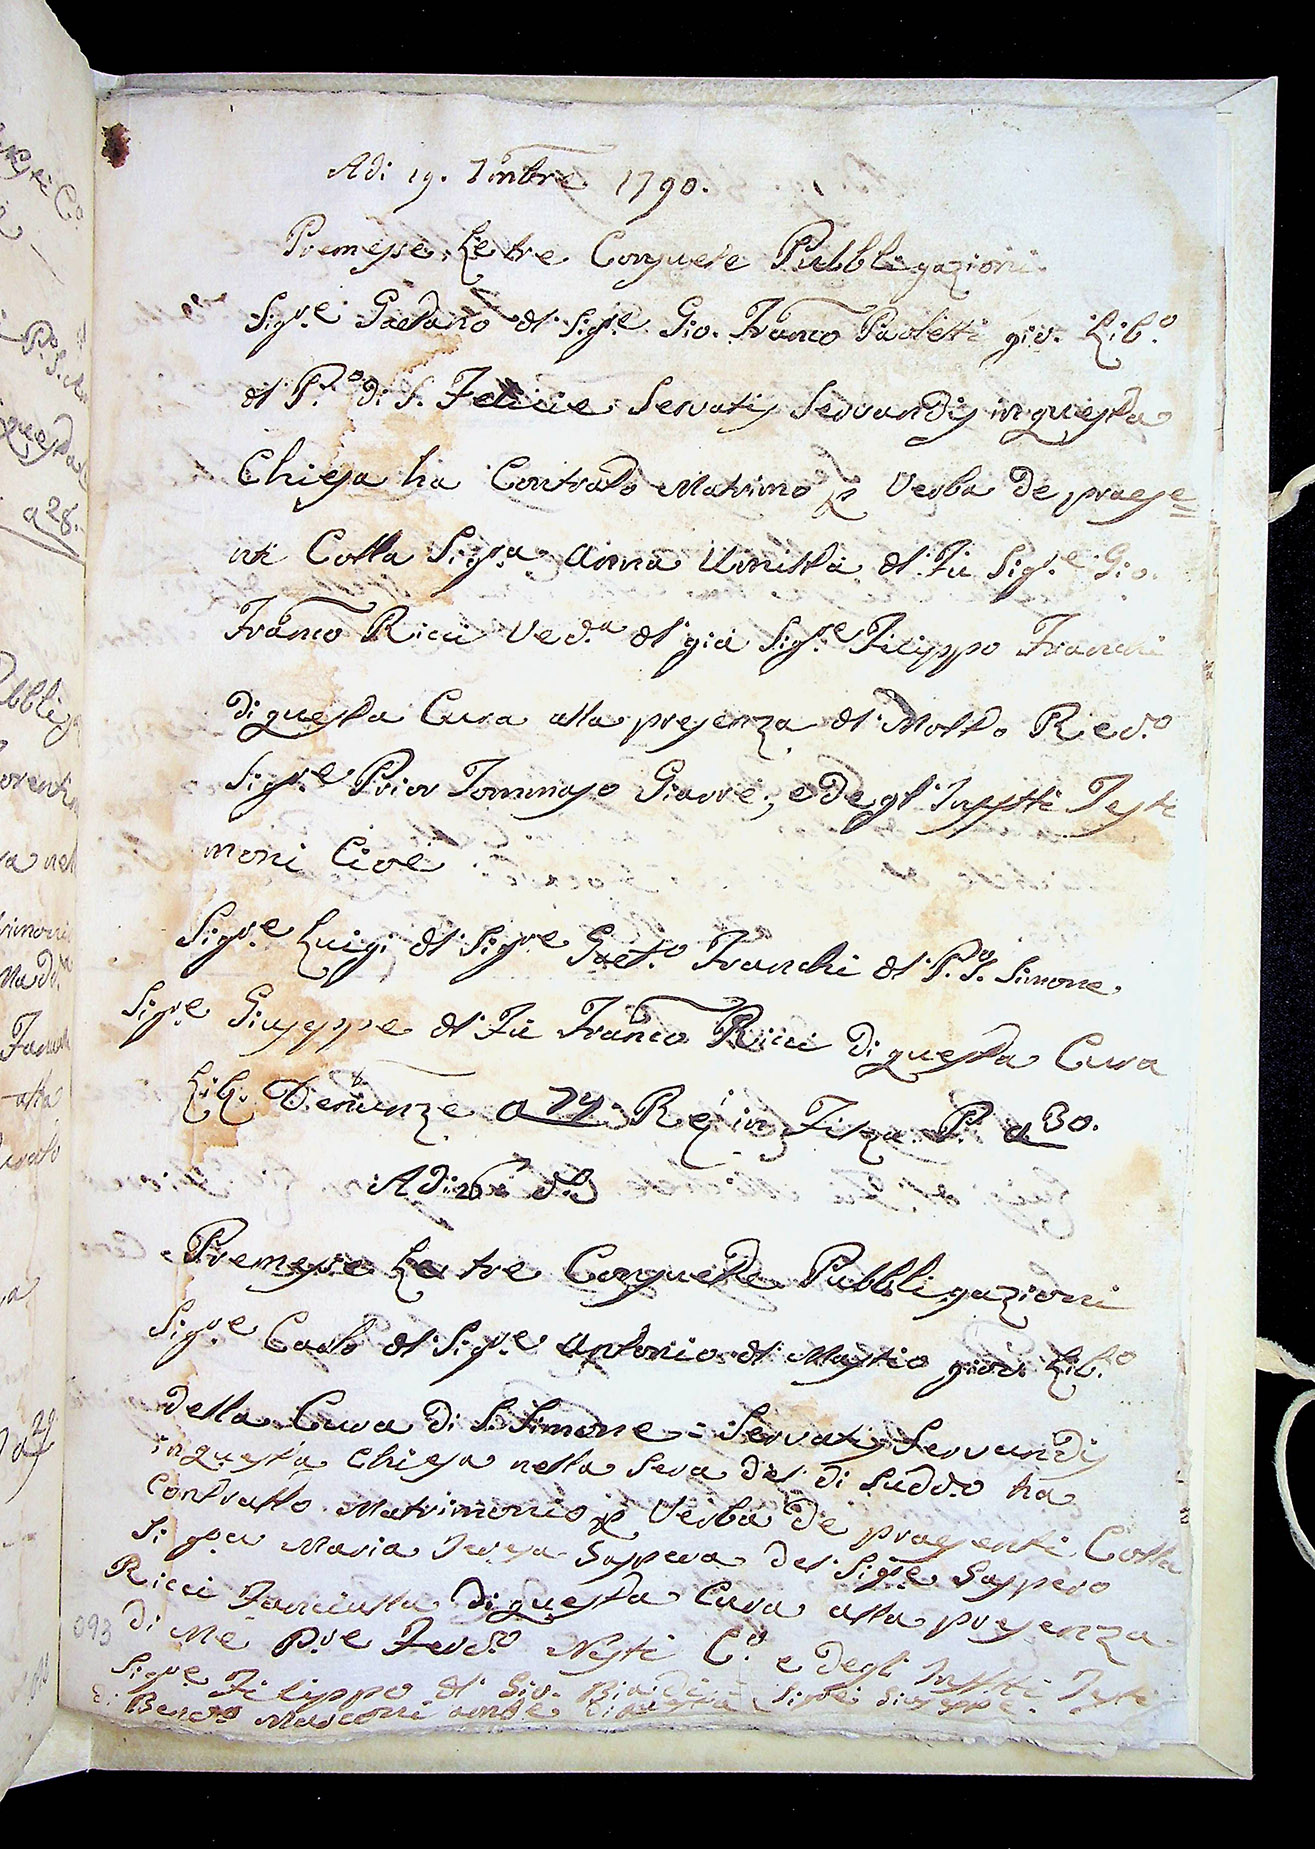 Adi 19. 7mbre 1790.
Premesse Le tre Consuete Pubbligazioni
Sig.re Gaetano dl Sig.re Gio. Franco Paoletti gio. Lib.o
dl P.o di S. Felicie Servatis Servandis in questa
Chiesa ha Contrato Matrimo p Verba de praese=
nti Colla Sig.ra Anna Umiltà dl Fù Sig.re Gio.
Franco Ricci Ved.a dl già Sig.re Filippo Franchi
di questa Cura alla presenza dl Molto Red.o
Sig.re Prior Tommaso Giarrè, e degl' Infftti Testi
moni Cioè
Sig.re Luigi dl Sig.re Gaet.o Franchi dl P.o S. Simone
Sig.re Giuseppe dl Fù Franco Ricci di questa Cura
Lib. Denunze a 74 Re in Filza P. a 30.
Adi 26 d.o
Premesse Le tre Consuete Pubbligazioni
Sig.re Carlo dl Sig.re Antonio dl Mastio giov. Lib.o
della Cura di S. Simone = Servatis Servandis
in questa Chiesa nella Sera del di Sudd.o ha
Contratto Matrimonio p Verba de praesenti Colla
Sig.ra Maria Teresa Gaspera del Sig.re Gaspero
Ricci Fanciulla di questa Cura alla presenza
di Me P.re Ferd.o Nesti C.o e degl' Infftti Testi
Sig.re Filippo dl Gio. Sig.re Giuseppe
di Bened.o Marconi ambe di questa
093